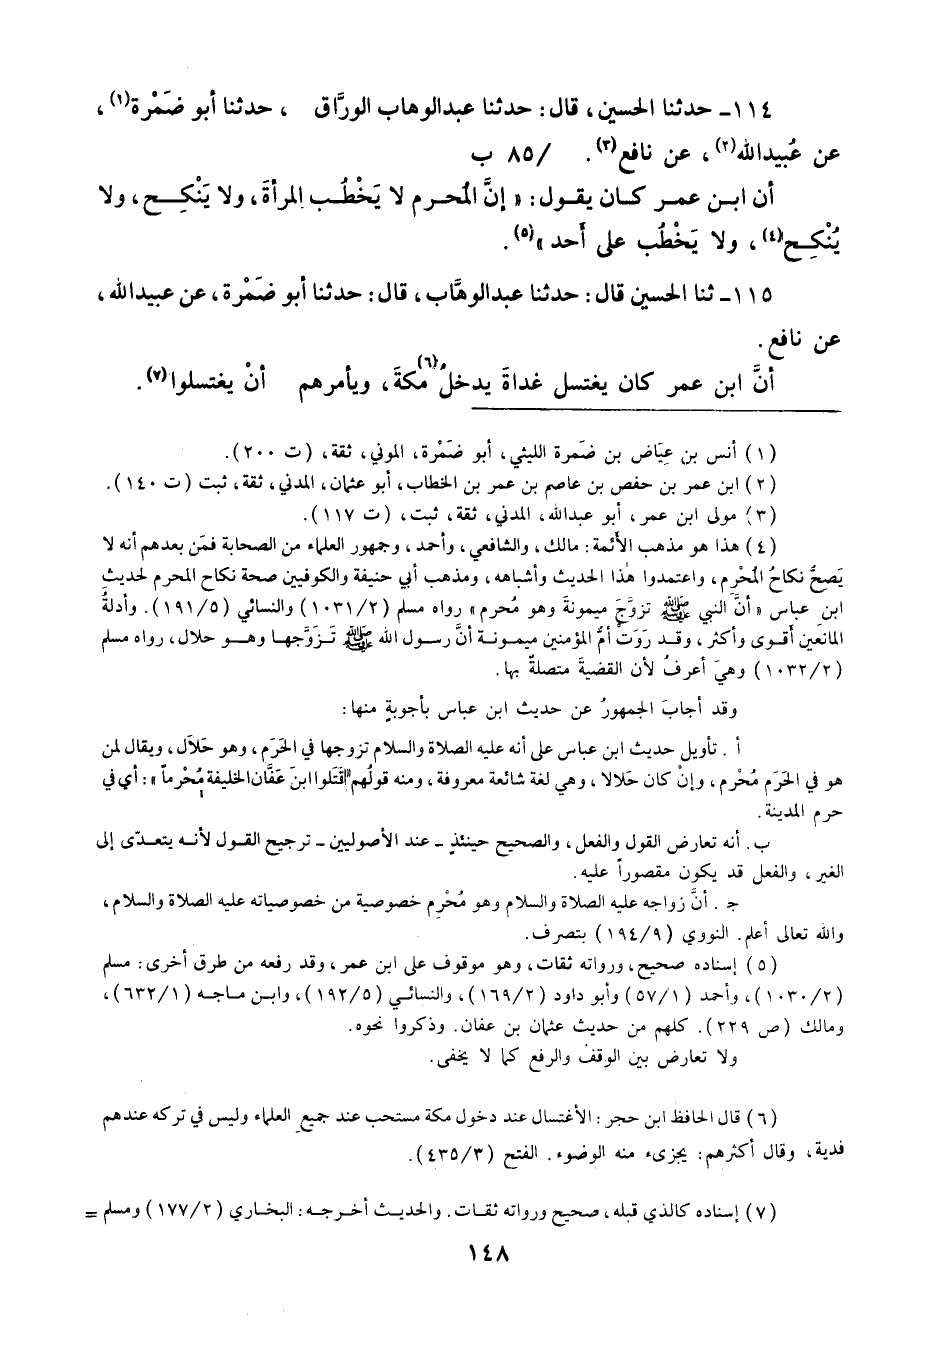 ١١٤ـ حدثنا الحسين، قال: حدثنا عبدالوهاب الورَّاق ، حدثنا أبو ضَمْرة(١)،
عن عُبيدالله(٢)، عن نافع(٣). /٨٥ ب
أن ابن عمر كان يقول: « إنَّ المُحرم لا يَخْطُب المرأةَ، ولا يَنْكِح، ولا
يُنْكِح(٤)، ولا يَخْطُب على أَحد »(٥).
١١٥ـ ثنا الحسين قال: حدثنا عبدالوهَّاب، قال: حدثنا أبو ضَمْرة، عن عبيدالله،
عن نافع.
أنَّ ابن عمر كان يغتسل غداةَ يدخلُ(٦) مكةَ، ويأمرهم أنْ يغتسلوا(٧).
(١) أنس بن عِيَاض بن ضَمرة الليثي، أبو ضَمْرة، الموني، ثقة، (ت ٢٠٠).
(٢) ابن عمر بن حفص بن عاصم بن عمر بن الخطاب، أبو عثمان، المدني، ثقة، ثبت (ت ١٤٠).
(٣) مولى ابن عمر، أبو عبدالله، المدني، ثقة، ثبت، (ت ١١٧).
(٤) هذا هو مذهب الأئمة: مالك، والشافعي، وأحمد، وجمهور العلماء من الصحابة فمَن بعدهم أنه لا
يَصحُّ نكاحُ المُحْرِم، واعتمدوا هٰذا الحديث وأشباهه، ومذهب أبي حنيفة والكوفيين صحة نكاح المحرم لحديث
ابن عباس « أنَّ النبي ﷺ تزوَّجَ ميمونةَ وهو مُحرم » رواه مسلم (١٠٣١/٢) والنسائي (١٩١/٥). وأدلةُ
المانعين أقوى وأكثر، وقد رَوَتْ أمُّ المؤمنين ميمونة أنَّ رسول الله ﷺ تَزَوَّجها وهو حلال، رواه مسلم
(١٠٣٢/٢) وهيَ أعرفُ لأن القضيةَ متصلةٌ بها.
وقد أجابَ الجمهورُ عن حديث ابن عباس بأجوبةٍ منها:
أ . تأويل حديث ابن عباس على أنه عليه الصلاة والسلام تزوجها في الحَرَم، وهو حَلَال، ويقال لمن
هو في الحَرَم مُحْرِم، وإنْ كان حَلالا، وهي لغة شائعة معروفة، ومنه قولُهم «قَتَلوا ابنَ عَفَّان الخليفة مُحْرِماً »: أي في
حرم المدينة.
ب. أنه تعارض القول والفعل، والصحيح حينئذٍ ـ عند الأصوليين ـ ترجيح القول لأنه يتعدّى إلى
الغير، والفعل قد يكون مقصوراً عليه.
جـ . أنَّ زواجه عليه الصلاة والسلام وهو مُحْرِم خصوصية من خصوصياته عليه الصلاة والسلام،
والله تعالى أعلم. النووي (١٩٤/٩) بتصرف.
(٥) إسناده صحيح، ورواته ثقات، وهو موقوف على ابن عمر، وقد رفعه من طرق أخرى: مسلم
(١٠٣٠/٢)، وأحمد (٥٧/١) وأبو داود (١٦٩/٢)، والنسائي (١٩٢/٥)، وابن ماجه (٦٣٢/١)،
ومالك (ص ٢٢٩). كلهم من حديث عثمان بن عفان. وذكروا نحوه.
ولا تعارض بين الوقف والرفع كما لا يخفى.
(٦) قال الحافظ ابن حجر: الأغتسال عند دخول مكة مستحب عند جميع العلماء وليس في تركه عندهم
فدية، وقال أكثرهم: يجزىء منه الوضوء. الفتح (٤٣٥/٣).
(٧) إسناده كالذي قبله، صحيح ورواته ثقات. والحديث أخرجه: البخاري (١٧٧/٢) ومسلم =
١٤٨